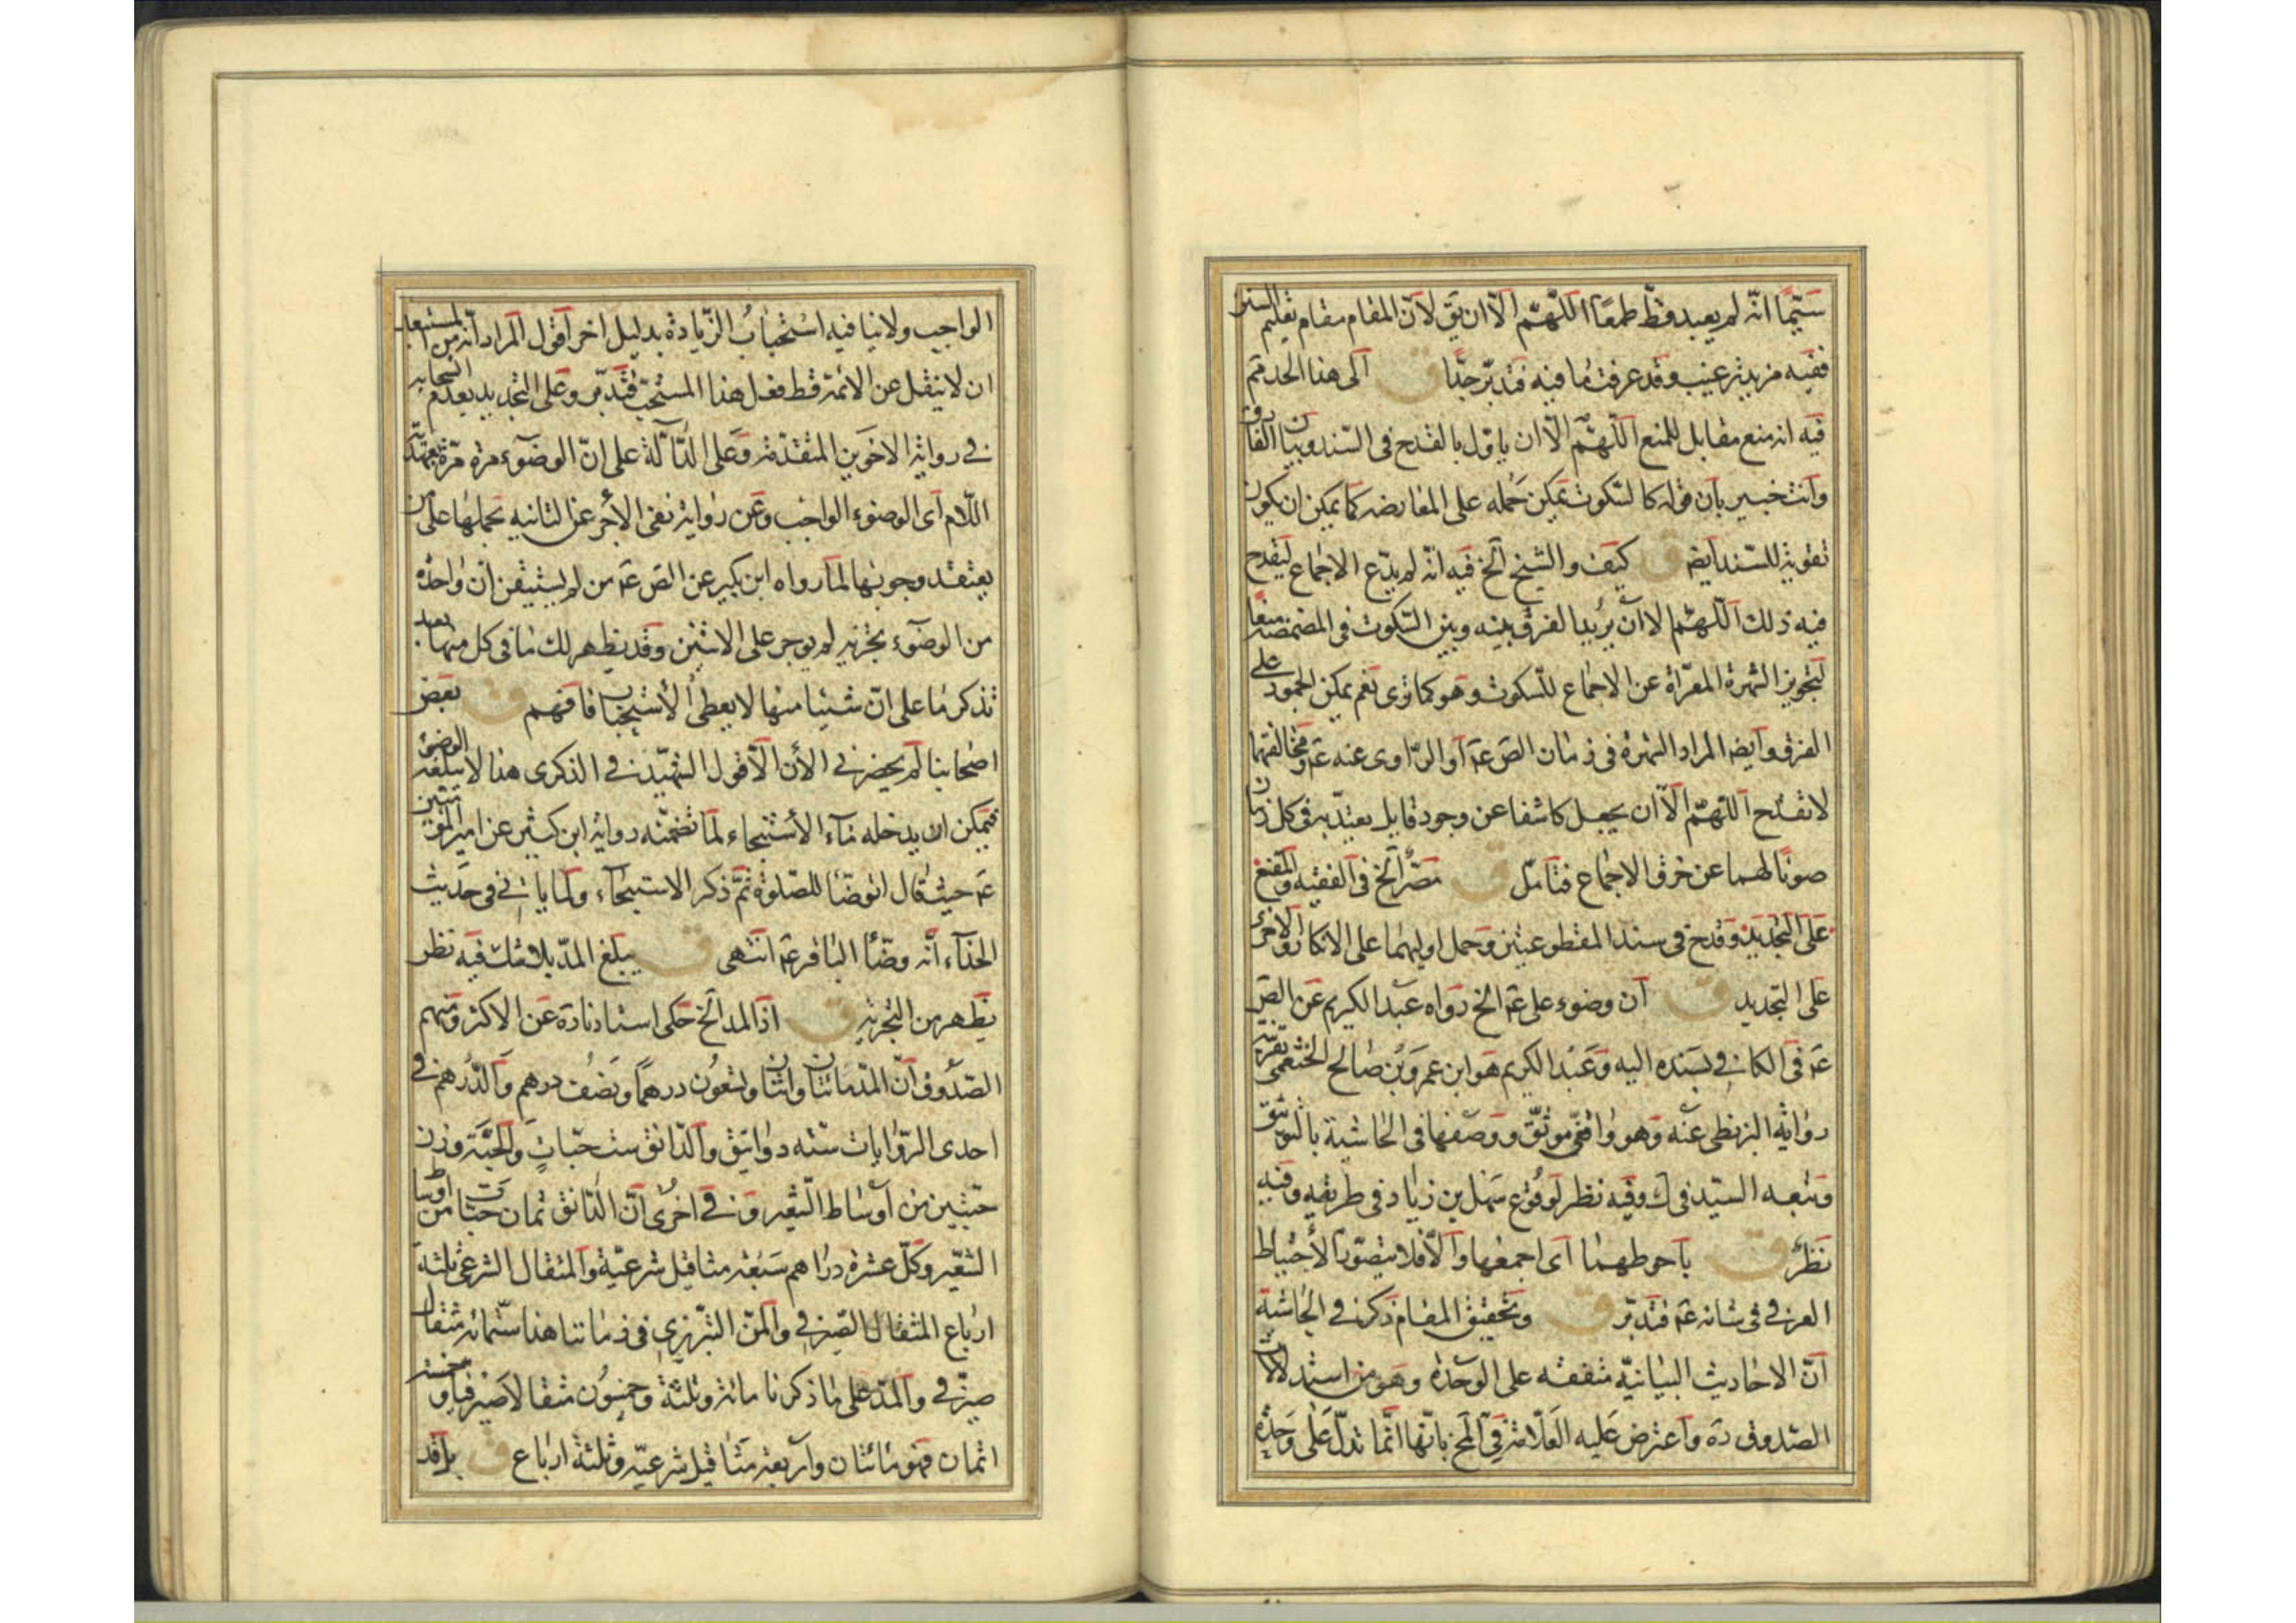 سيّما انّه لم يعبد قطّ طمعًا اللّهمّ الّا ان يق لانّ المقام مقام تعليم
ففيه مزيد ترغيب وقد عرفت ما فيه فتدبّر جدّا ق الى هذا الحد قم
فيه انه منع مقابل للمنع اللّهمّ الّا ان ياوّل بالقدح فى السّند وبيان الفارق
وانت خبير بان قوله كالسّكوت يمكن حمله على المعارضه كما يمكن ان يكون
تقوية للسّند ايضه ق كيف والشيخ الخ فيه انّه لم يدّع الاجماع ليقدح
فيه ذلك اللّهمّ الا ان يريد الفرق بينه وبين السّكوت فى المضمضه
لتجويز الشهرة المعرّاة عن الاجماع للسّكوت وهو كما ترى نعم يمكن الجمود على
الفرق وايضه المراد الشهرة فى زمان الص عم او الرّاوى عنه عم ومخالفتهما
لا تقدح اللّهمّ الّا ان يجعل كاشفا عن وجود قايل يعتدّ به فى كل زمان
صونًا لهما عن خرق الاجماع فتامّل ق نصّر الخ فى الفقيه والمقنع
على التجديد وقدح فى سند المقطوعتين وحمل اوليهما على الانكار والاخرى
على التجديد ق ان وضوء على عم الخ رواه عبد الكريم عن الص
عم فى الكافى بسنده اليه وعبد الكريم هو ابن عمرو بن صالح الخثعمى بقرينة
رواية البزنطى عنه وهو واقفى موثّق ووصفها فى الحاشية بالتوثيق
وتبعه السيّد فى ك وفيه نظر لوقوع سهل بن زياد فى طريقه وفيه
نظر ق باحوطهما اى اجمعها والّا فلا يتصوّر الأحتياط
العرفى فى شانه عم فتدبّر ق وتحقيق المقام ذكر فى الحاشية
انّ الاحاديث البيانيّة متفقه على الوحدة وهو من استدلالات
الصّدوق ره واعترض عليه العلّامة فى المخ بانّها انّما تدلّ على وحدة
الواجب ولا ينافيه استحباب الزّيادة بدليل اخر اقول المراد انّه من المستبعد
ان لا ينقل عن الائمة قط فعل هذا المستحبّ فتدبّر وعلى التجديد يعدم
فى رواية الاخوين المتقدّمة وعلى الدّالّة على انّ الوضوء مرة مرّة
اللّام اى الوضوء الواجب وعن رواية نفى الأجر عن الثانيه بحملها على من
يعتقد وجوبها لما رواه ابن بكير عن الص عم من لم يستيقن ان واحدة
من الوضوء تجزيه لم يوجر على الاثنين وقد يظهر لك ما فى كل منها بعد
تذكر ما على انّ شيئا منها لا يعطى الأستحباب فافهم ق بعض
اصحابنا لم يحضرنى الأن الّا قول الشهيد فى الذكرى هذا لا يبلغه الوضوء
فيمكن ان يدخله ماء الأستنجاء لما تضمّنه رواية ابن كثير عن امير المؤمنين
عم حيث قال اتوضّا للصّلوة ثمّ ذكر الاستنجاء ولما ياتى فى حديث
الحذاء انّه وضّأ الباقر عم انتهى ق يبلغ المدّ بلا شك فيه نظر
يظهر من التجربة ق اذ المد الخ حكى استادنا ره عن الاكثر ومنهم
الصّدوق انّ المدّ مائتان واثنان وتسعون درهمًا ونصف درهم والدّرهم فى
احدى الرّوايات ستّه دوانيق والدّانق ست حبّات والحبّة وزن
حبّتين من اوساط الشّعير وفى اخرى انّ الدّانق ثمان حبّات من اوساط
الشعير وكلّ عشرة دراهم سبعة مثاقيل شرعيّة والمثقال الشرعى ثلثة
ارباع المثقال الصّيرفى والمنّ التبريزى فى زماننا هذا ستّمائه مثقال
صيرفى والمدّ على ما ذكرنا مائة وثلثة وخمسون مثقالا صيرفيا وخمسة
اثمان فهو مائتان واربعة مثاقيل شرعيّه وثلثة ارباع ق بل قد